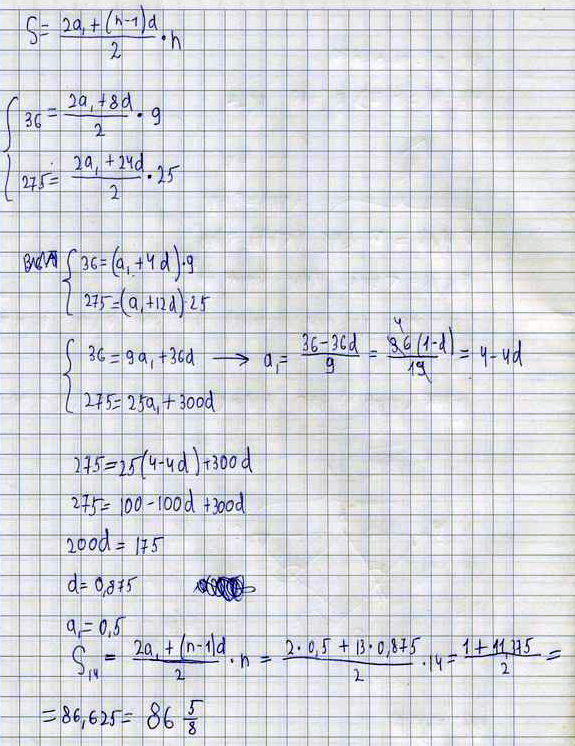 S = (2a₁ + (n-1)d)/2 · n
36 = (2a₁ + 8d)/2 · 9
275 = (2a₁ + 24d)/2 · 25
36 = (a₁ + 4d) · 9
275 = (a₁ + 12d) · 25
36 = 9a₁ + 36d → a₁ = (36 - 36d)/9 = 4 36(1-d)/19 = 4 - 4d
275 = 25a₁ + 300d
275 = 25(4 - 4d) + 300d
275 = 100 - 100d + 300d
200d = 175
d = 0,875
a₁ = 0,5
S₁₄ = (2a₁ + (n-1)d)/2 · n = (2 · 0,5 + 13 · 0,875)/2 · 14 = (1 + 11,375)/2 =
= 86,625 = 86 5/8